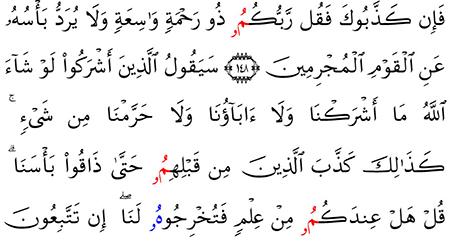 فَإِن كَذَّبُوكَ فَقُل رَّبُّكُمُۥ ذُو رَحْمَةٍ وَٰسِعَةٍ وَلَا يُرَدُّ بَأْسُهُۥ
عَنِ ٱلْقَوْمِ ٱلْمُجْرِمِينَ ۝١٤٨ سَيَقُولُ ٱلَّذِينَ أَشْرَكُوا۟ لَوْ شَآءَ
ٱللَّهُ مَا أَشْرَكْنَا وَلَا ءَابَآؤُنَا وَلَا حَرَّمْنَا مِن شَىْءٍ ۚ
كَذَٰلِكَ كَذَّبَ ٱلَّذِينَ مِن قَبْلِهِمُۥ حَتَّىٰ ذَاقُوا۟ بَأْسَنَا ۗ
قُلْ هَلْ عِندَكُمُۥ مِنْ عِلْمٍ فَتُخْرِجُوهُۥ لَنَا ۖ إِن تَتَّبِعُونَ